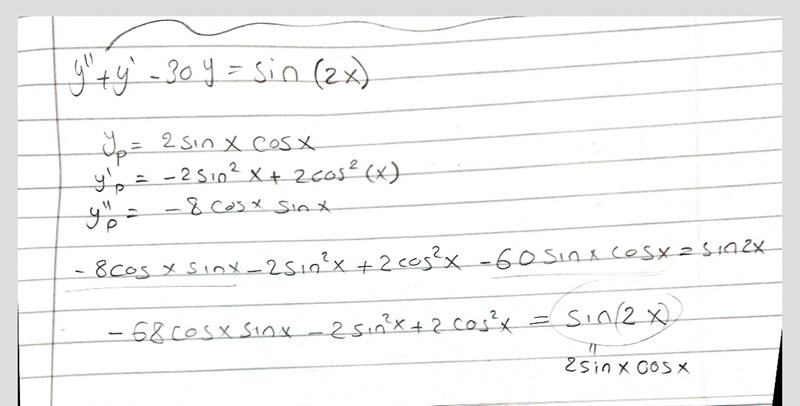 y'' + y' - 30 y = sin (2x)
y_p = 2 sin x cos x
y'_p = -2 sin² x + 2 cos² (x)
y''_p = -8 cos x sin x
-8 cos x sin x - 2 sin² x + 2 cos² x - 60 sin x cos x = sin 2x
-68 cos x sin x - 2 sin² x + 2 cos² x = sin (2x)
"
2 sin x cos x